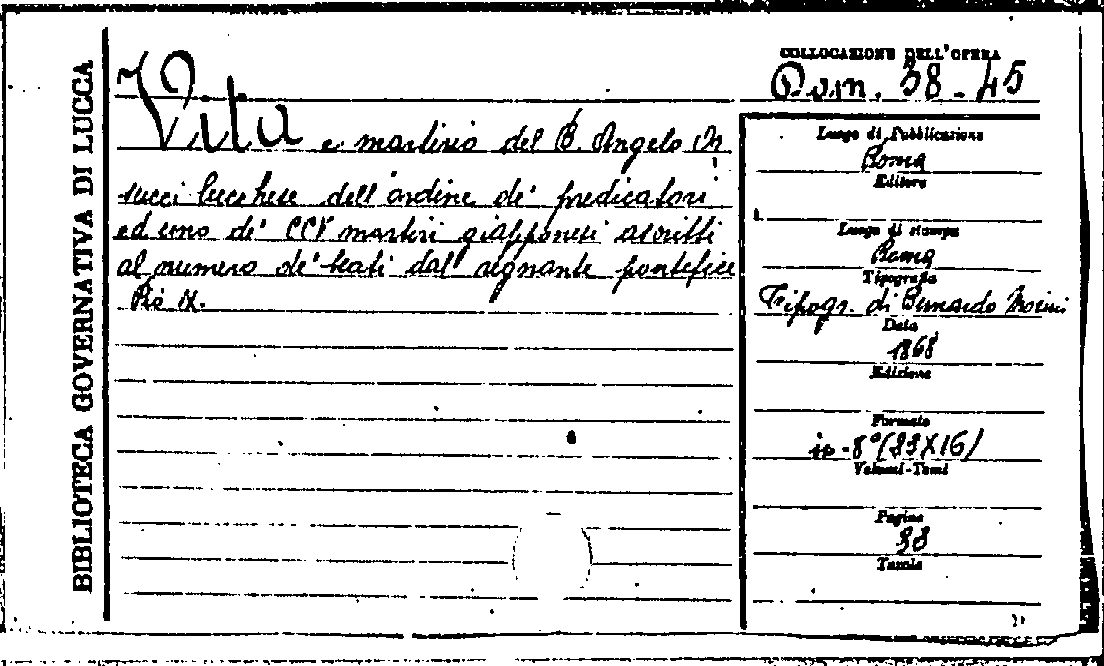 BIBLIOTECA GOVERNATIVA DI LUCCA
COLLOCAZIONE DELL'OPERA
Dom. 38-45
Vita e martirio del B. Angelo Or
succi lucchese dell'ordine de' predicatori
ed uno de' CCV martiri giapponesi ascritti
al numero de' beati dall' regnante pontefice
Pio IX.
Luogo di Pubblicazione
Roma
Editore
Luogo di stampa
Roma
Tipografia
Tipogr. di Bernardo Morini
Data
1868
Edizione
Formato
in-8° (23X16)
Volumi-Tomi
Pagine
38
Tavole